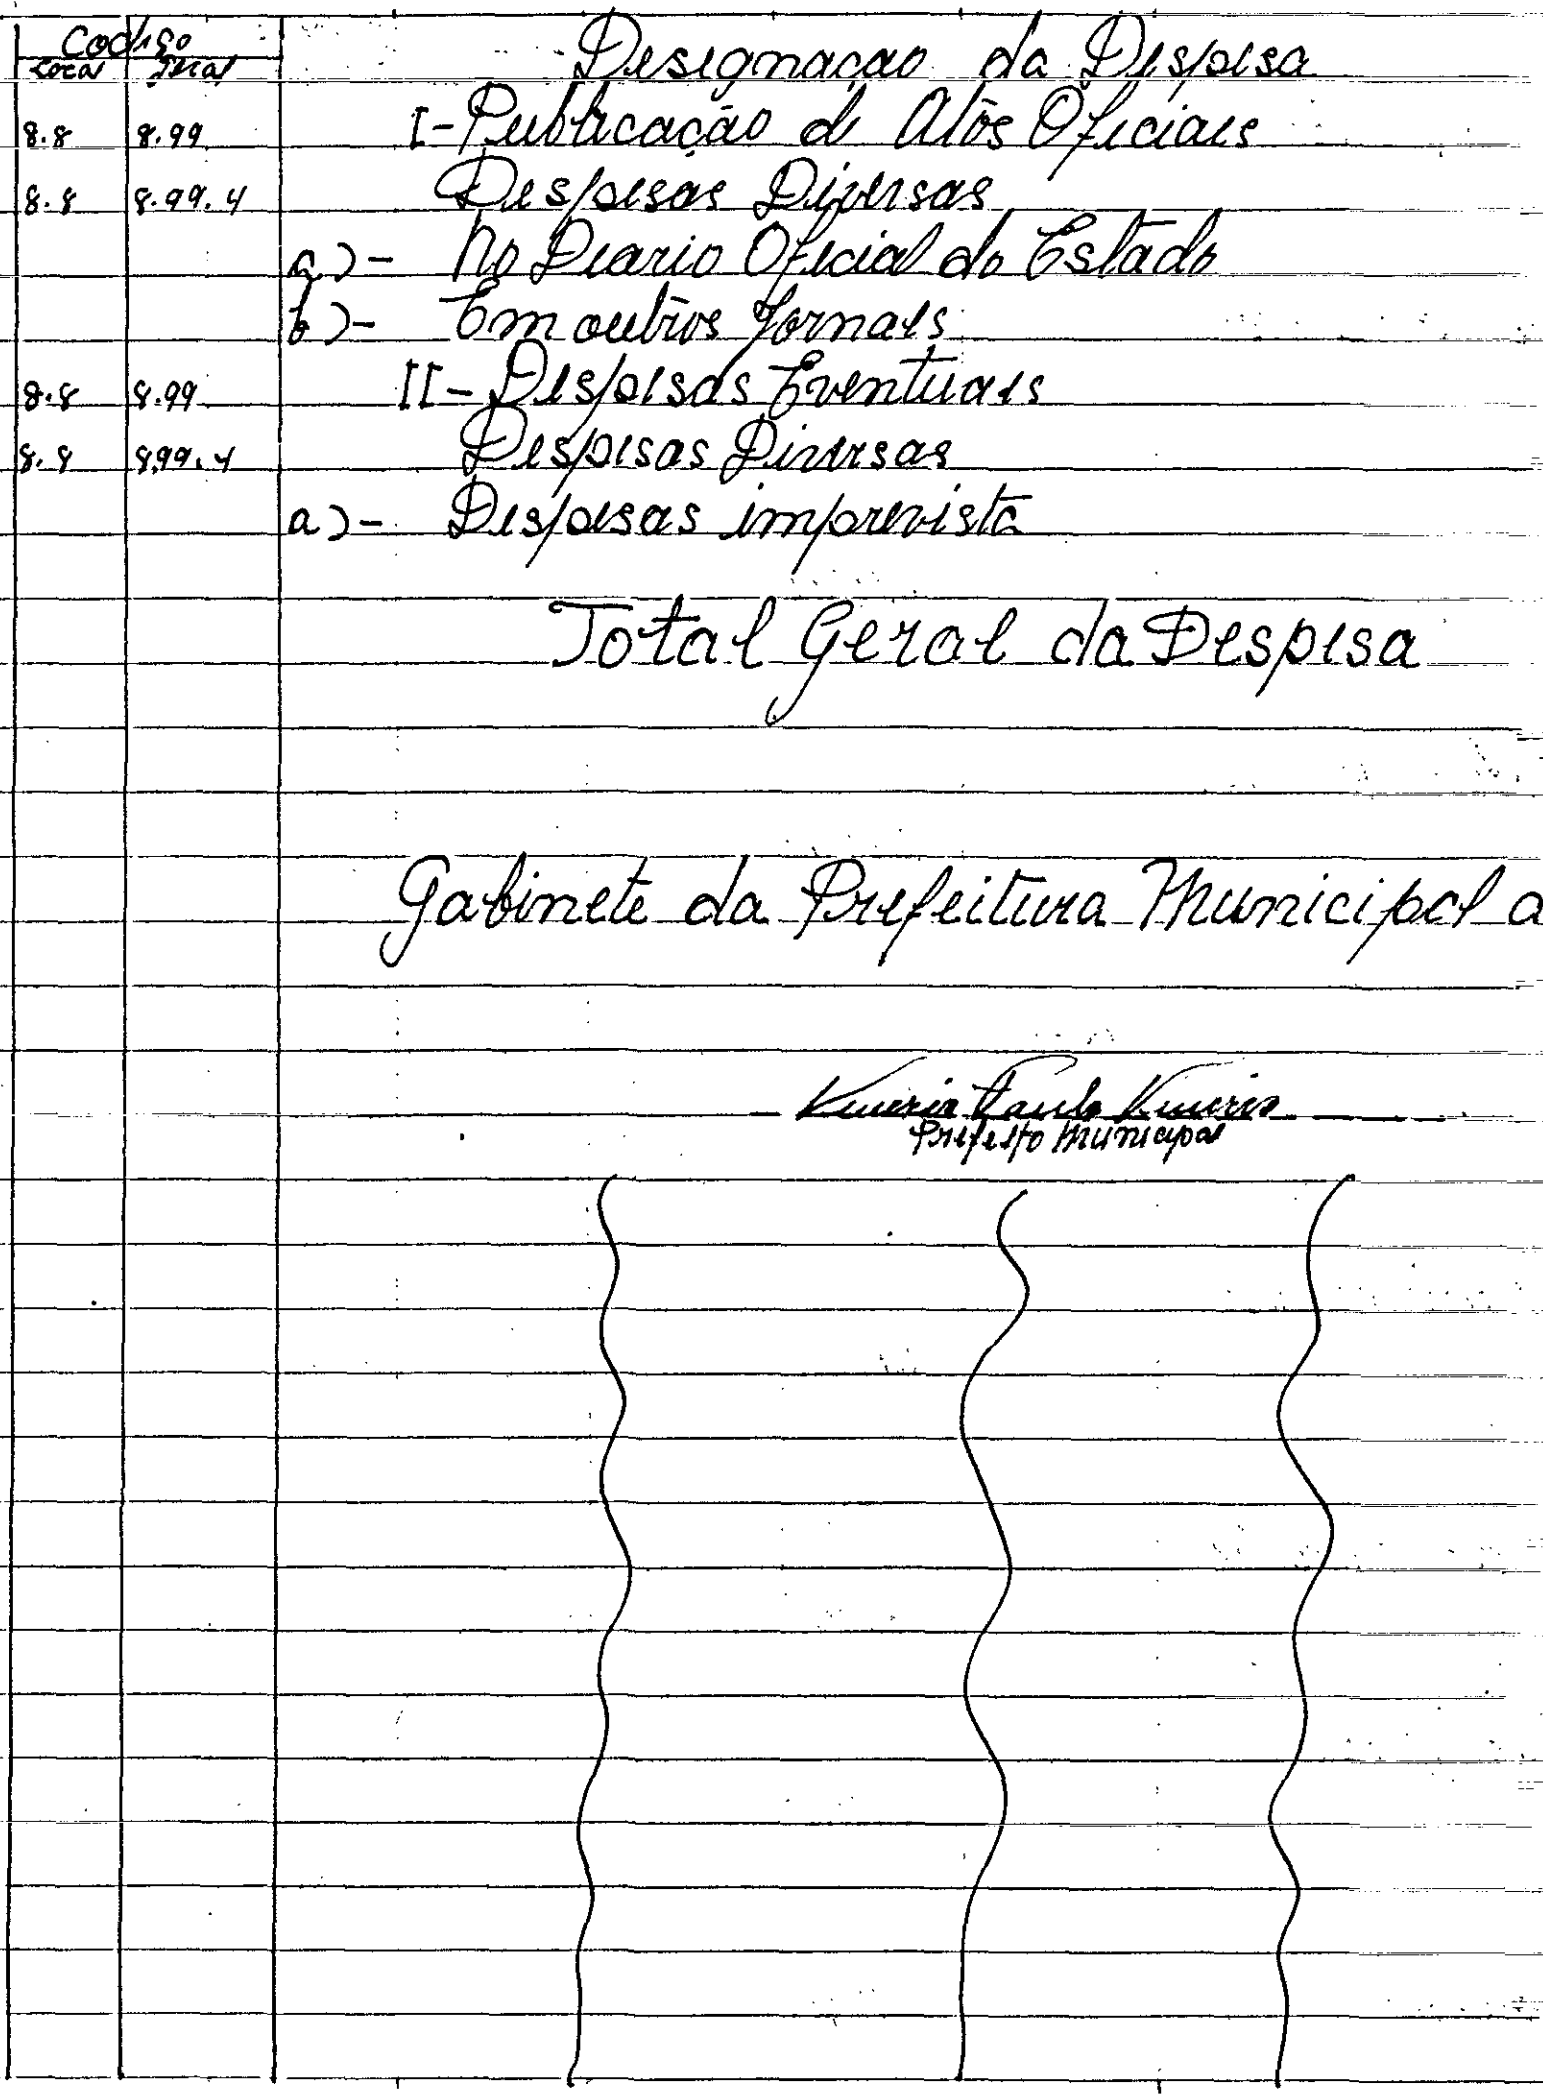 Codigo Designação da Despesa
Local Geral
8.8 8.99 I - Publicação de Atos Oficiais
8.8 8.99.4 Despesas Diversas
a)- No Diario Oficial do Estado
b)- Em outros Jornais
8.8 8.99 II - Despesas Eventuais
8.8 899.4 Despesas Diversas
a)- Despesas imprevista
Total Geral da Despesa
Gabinete da Prefeitura Municipal a
Paulo
Prefeito Municipal